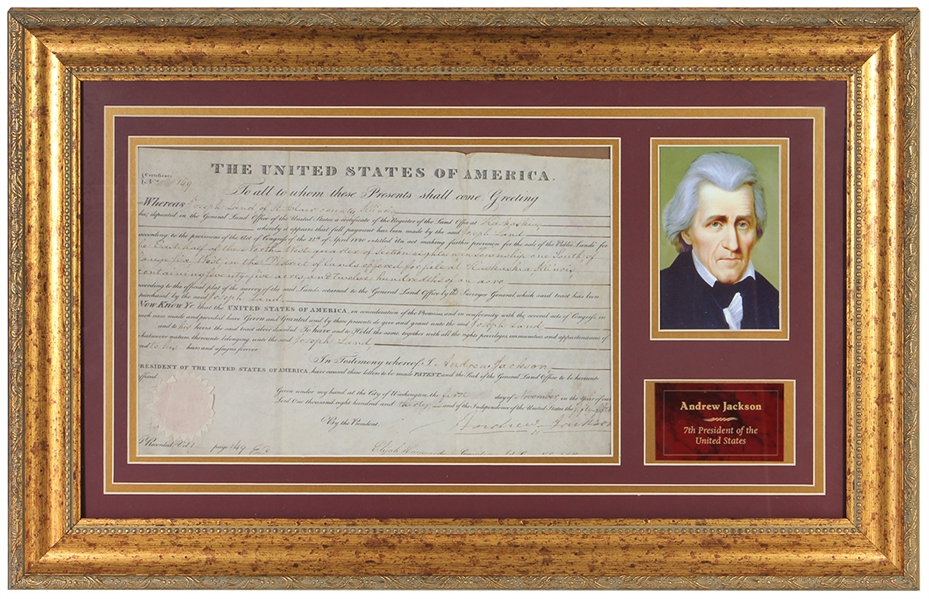 THE UNITED STATES OF AMERICA.
Certificate
No.
To all to whom these Presents shall come, Greeting
Whereas Joseph Land of St Clair county Illinois
has deposited in the General Land Office of the United States a certificate of the Register of the Land Office at Kaskaskia
whereby it appears that full payment has been made by the said Joseph Land
according to the provisions of the Act of Congress of the 24th of April 1820 entitled An act making further provision for the sale of the Public Lands for
the East half of the West of Section in Township one South of
Range West in the District of Lands offered for sale at Kaskaskia Illinois
containing seventy five acres and twelve hundredths of an acre
according to the official plat of the survey of the said Lands returned to the General Land Office by the Surveyor General, which said tract has been
purchased by the said Joseph Land
Now Know Ye that the UNITED STATES OF AMERICA, in consideration of the Premises and in conformity with the several acts of Congress in
such case made and provided have Given and Granted and by these presents do give and grant unto the said Joseph Land
and to his heirs the said tract above described: To have and to Hold the same together with all the rights privileges, immunities and appurtenances of
whatsoever nature thereunto belonging unto the said Joseph Land
and to his heirs and assigns forever.
In Testimony whereof I, Andrew Jackson
PRESIDENT OF THE UNITED STATES OF AMERICA have caused these letters to be made PATENT and the Seal of the General Land Office to be hereunto
affixed.
Given under my hand at the City of Washington, the first day of November in the Year of our
Lord One thousand eight hundred and thirty and of the Independence of the United States the fifty fifth
By the President Andrew Jackson
Recorded, Vol. page 149
Andrew Jackson
7th President of the
United States